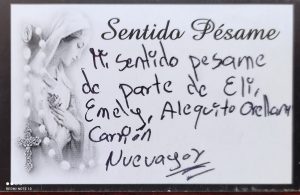 Sentido Pésame
Mi sentido pesame
de parte de Eli,
Emely, Alequito Orellana
Carrión
Nuevayor